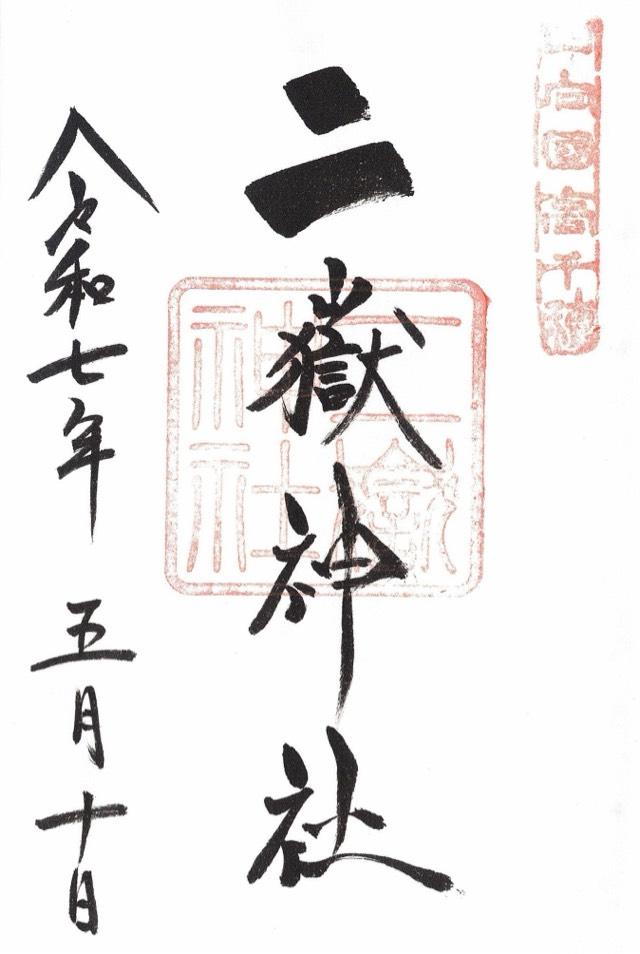 日向國高千穂
二嶽神社
二嶽
神社
令和七年五月十日